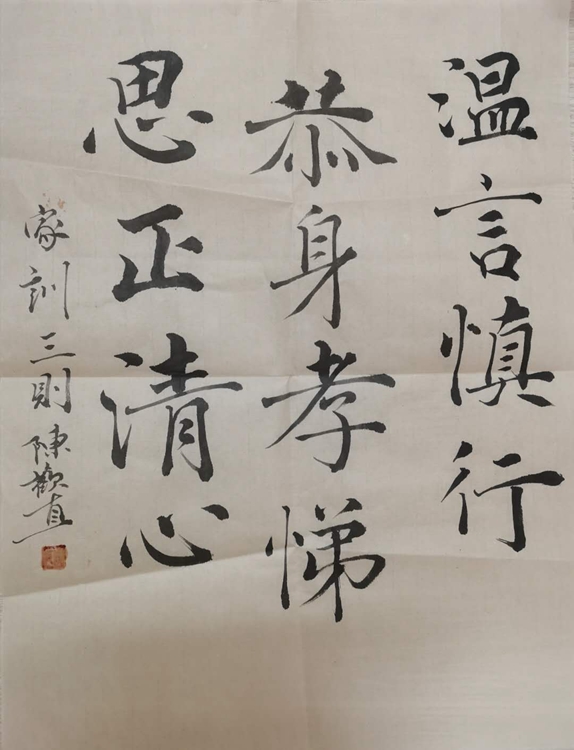 温言慎行
恭身孝悌
思正清心
家訓三則 陳歡直